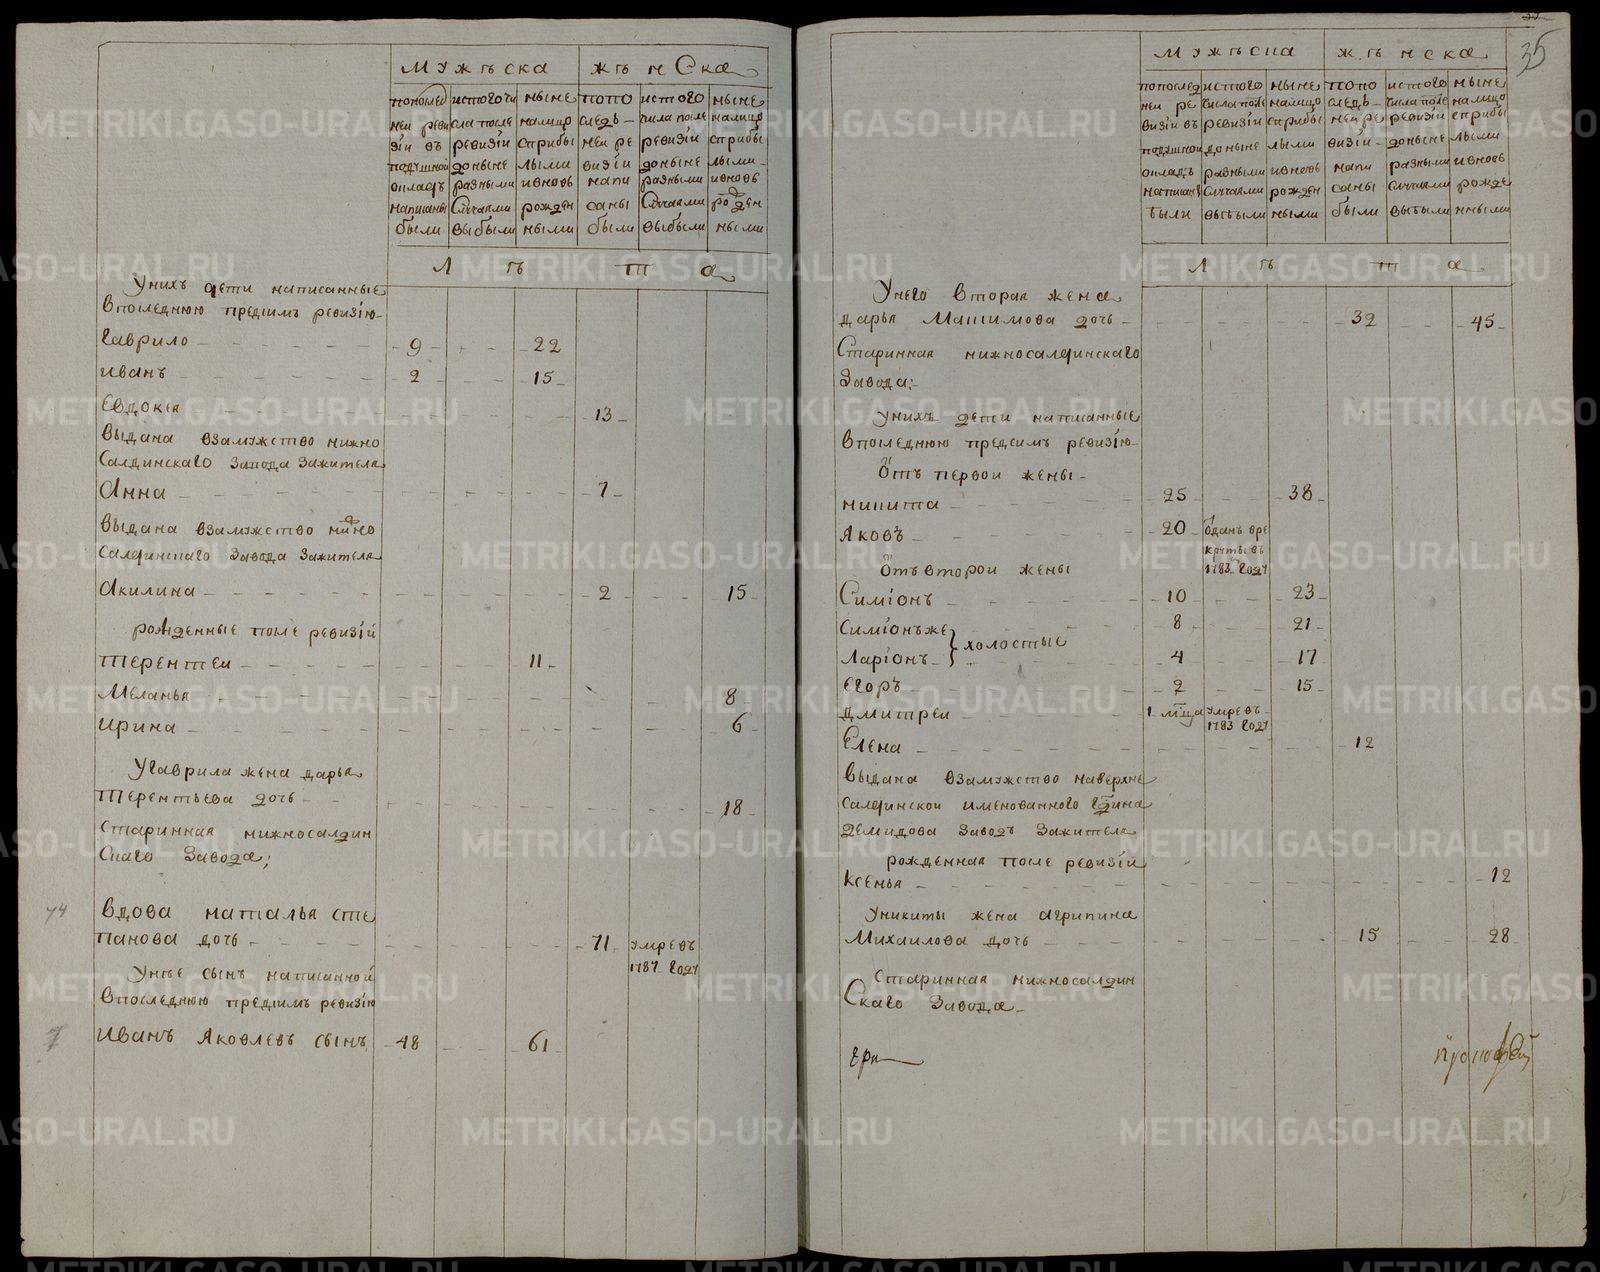 мужъска женска
пополед неи реви зіи въ подушной окладъ написаны были
истогочи сла после ревизіи доныне разными Случаями выбыли
ныне налицо сприбы лыми ивновь рожден ными
попоследъ неи ре визіи напи саны были
истого числа после ревизіи доныне разными Случаями выбыли
ныне налицо сприбы лыми ивновь рожден ными
лѣта
Унихъ дети написанные
впоследнюю предсимъ ревизію
Гаврило 9 22
иванъ 2 15
Евдокея 13
выдана взамужство нижно
Салдинскаго завода зажителя
Анна 7
выдана взамужство нижно
салдинскаго завода зажителя
Акилина 2 15
рожденные после ревизіи
терентеи 11
Меланья 8
ирина 6
Угаврила жена дарья
терентьева дочь 18
старинная нижносалдин
Скаго завода;
74 вдова наталья сте
панова дочь 71 умре въ
1787 году
Унее сынъ написанной
впоследнюю предсимъ ревизію
иванъ яковлевъ сынъ 48 61
35
мужъска женска
попоследнеи ре визіи въ подушной окладъ написаны были
истого числа после ревизіи доныне разными Случаями выбыли
ныне налицо сприбы лыми ивновь рожден ными
попо следъ неи ре визіи напи саны были
истого числа после ревизіи доныне разными Случаями выбыли
ныне налицо сприбы лыми ивновь рожде нными
лѣта
Унего вторая жена
дарья Макимова дочь 32 45
Старинная нижносалдинскаго
завода;
Унихъ дети написанные
впоследнюю предсимъ ревизію
Отъ первои жены
никита 25 38
яковъ 20 Отданъ вре
круты въ
1783 году
Отъ второи жены
Симіонъ 10 23
Симіонъ же 8 21
холостые
Ларіонъ 4 17
Егоръ 2 15
дмитреи 1 мца умре въ
1783 году
Елена 12
выдана взамужство наверхне
салдинской именованного Гдина
демидова заводъ зажителя
рожденная после ревизіи
Ксенья 12
Уникиты жена агрипина
Михаилова дочь 15 28
старинная нижносалдин
Скаго завода
METRIKI.GASO-URAL.RU